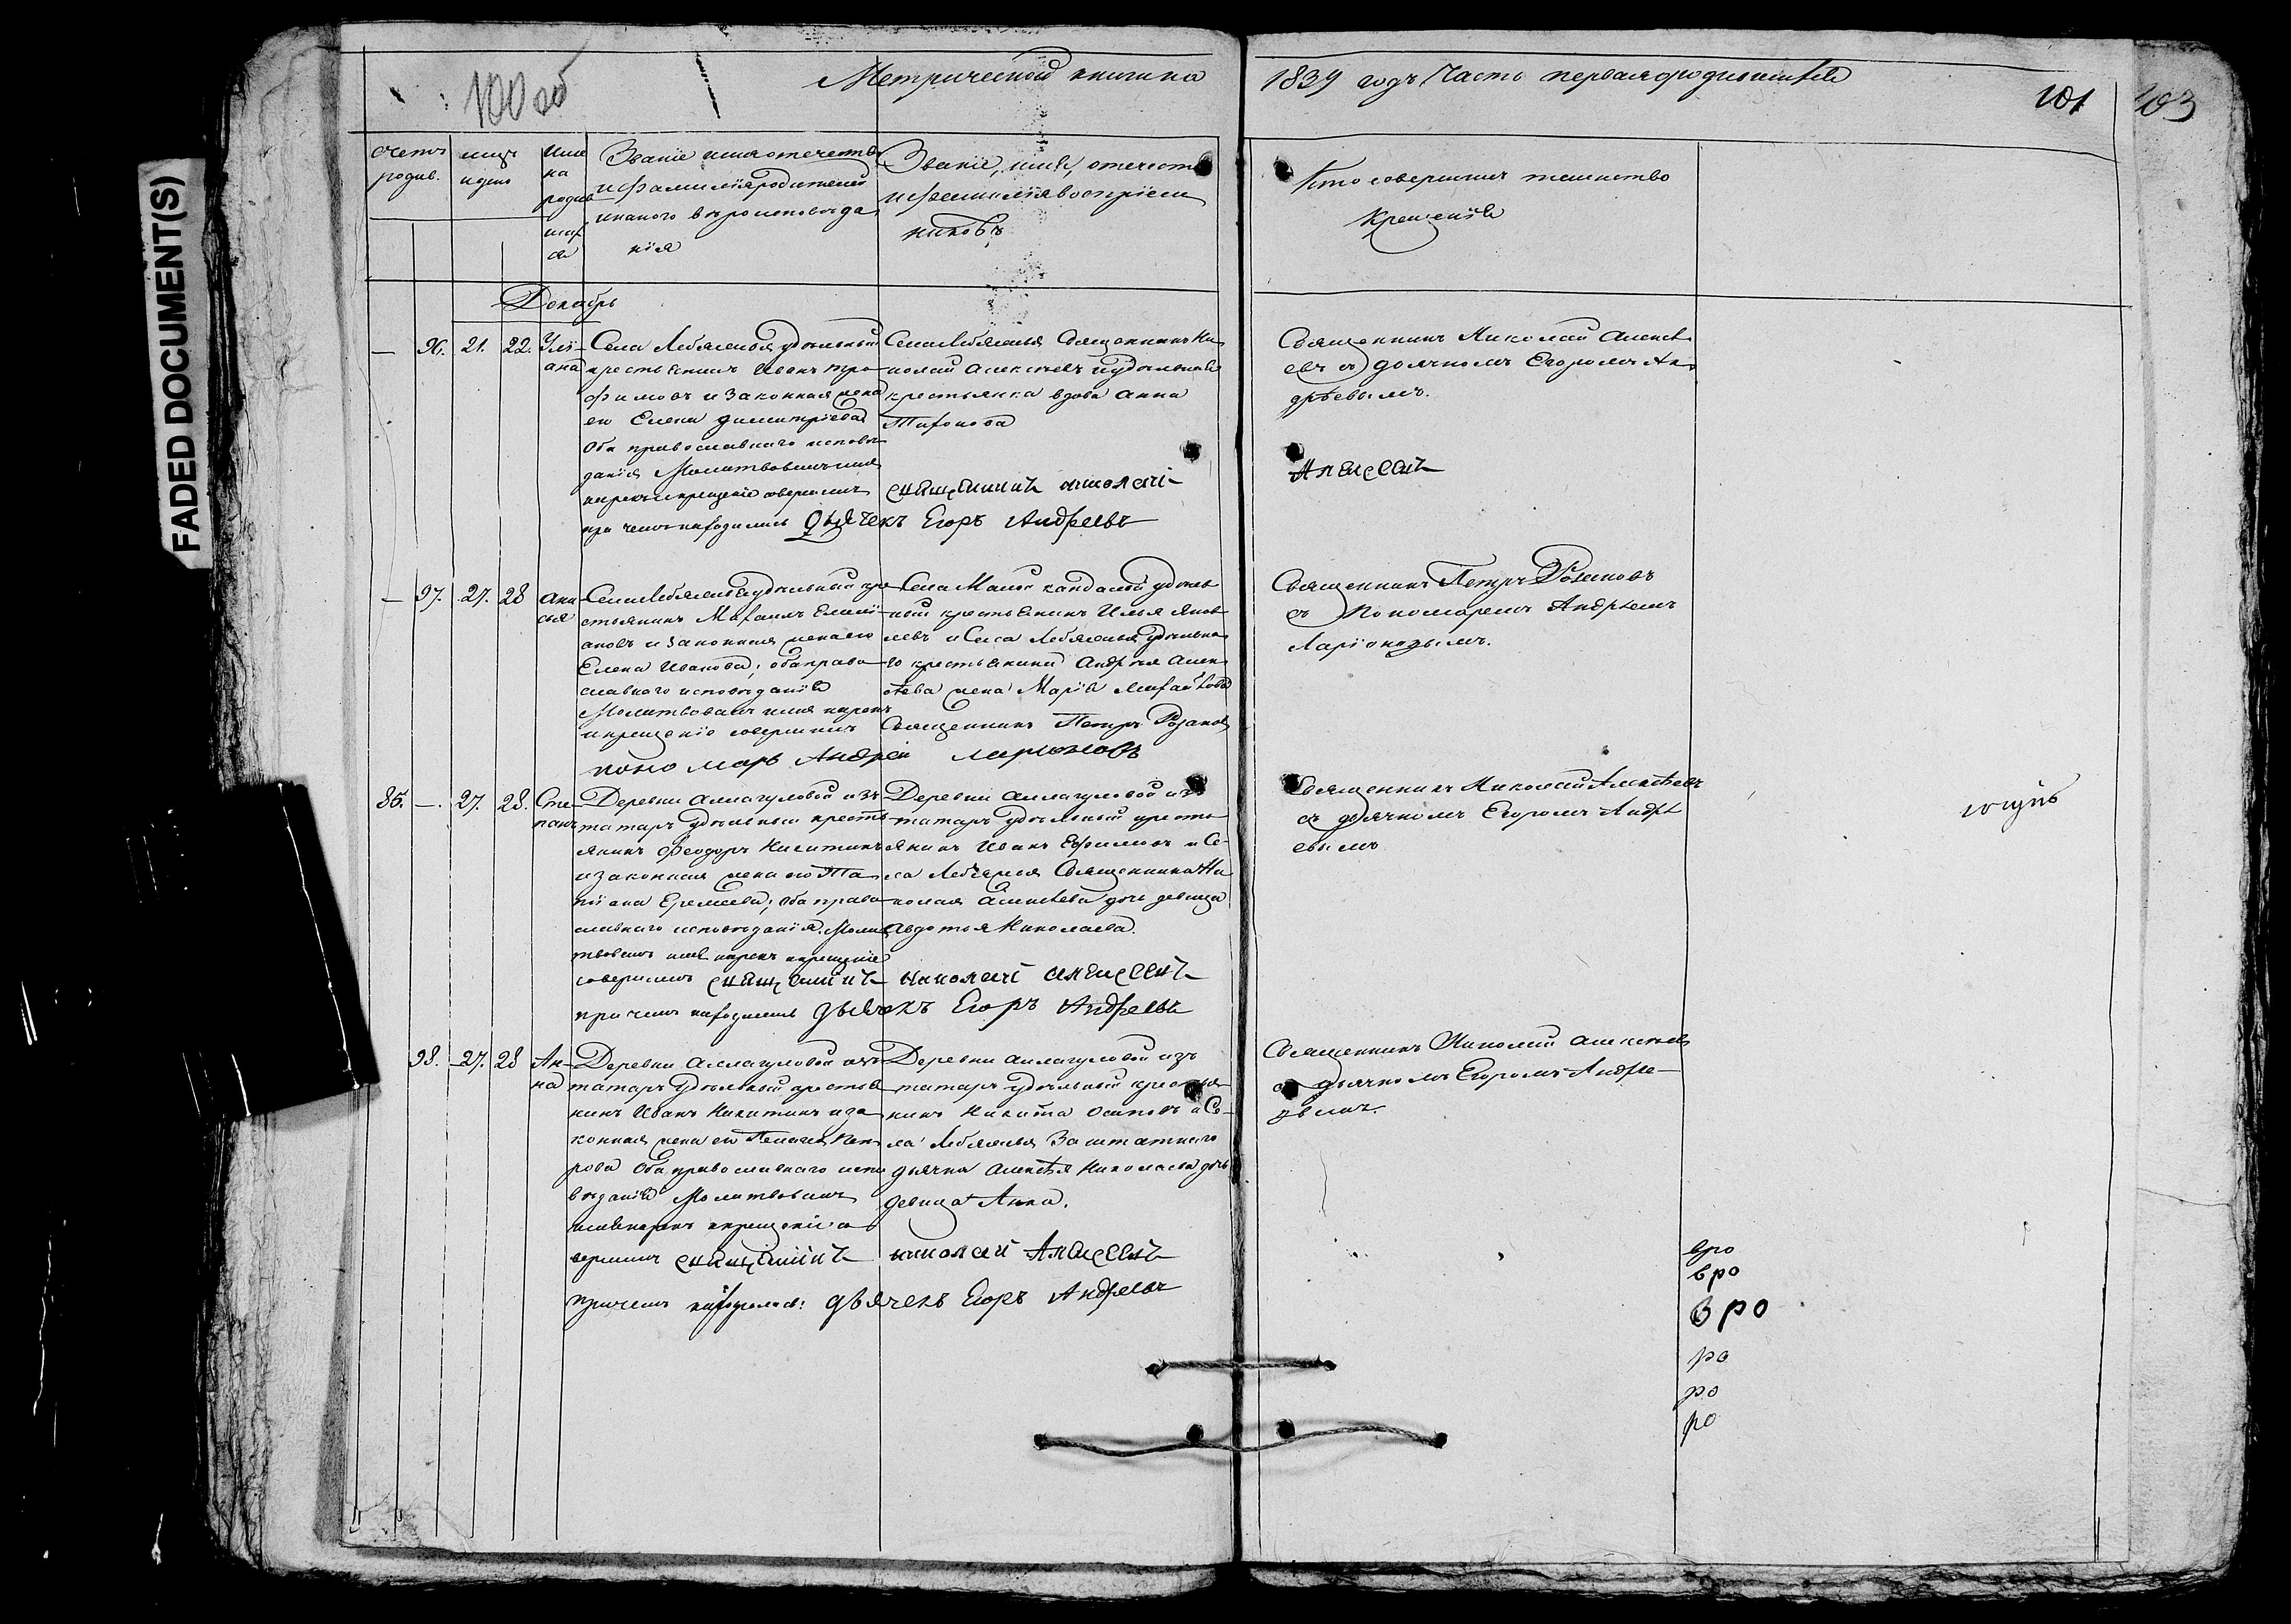 FADED DOCUMENT(S)
100 об
Метрической книги на
1839 годъ Часть первая о родившихся
101
103
счетъ родив.
мцъ и день
Име на родив шаго ся
Званіе имя отечество
и фамилія родителей
и какого вероисповеда
нія
Званіе, имя, отечество
и фамилія воспріем
никовъ
Кто совершилъ таинство
Крещенія
Декабрь
— 96. 21. 22. Улі
ана
Села Лебяжья удельный
крестьянинъ Иванъ Тро
фимовъ и законная жена
его Елена Димитріева
Оба православнаго испове
данія Молитвовалъ имя
нарекъ и крещеніе совершилъ
при чемъ находились дьячекъ Егоръ Андреевъ
Села Лебяжья Священникъ Ни
колай Алексеевъ и удельная
крестьянка вдова Анна
Тихонова
священникъ николаі
Священникъ Николай Алексе
евъ съ дьячкомъ Егоромъ Ан
дреевымъ.
Алексеевъ
— 97. 27. 28 Ани
сья
Села Лебяжья удельный кре
стьянинъ Михаилъ Емелі
ановъ и законная жена его
Елена Иванова; оба право
славнаго исповеданія
Молитвовалъ имя нарекъ
и крещеніе совершилъ
Села Малой Кандалы удель
ный крестьянинъ Илья Яков
левъ и Села Лебяжья удельна
го крестьянина Андрея Алек
сеева жена Марія Михайлова
Священникъ Петръ Розановъ
пономарь Андрей Ларионовъ
Священникъ Петръ Розановъ
съ Пономаремъ Андреемъ
Ларіоновымъ.
85. — 27. 28. Сте
панъ
Деревни Аллагуловой изъ
татаръ удельный кресть
янинъ Феодоръ Никитинъ
и законная жена его Та
тіана Еремеева; Оба право
славнаго исповеданія. Моли
твовалъ имя нарекъ крещеніе
совершилъ священникъ николаі алексеевъ
при чемъ находился дьячекъ Егоръ Андреевъ
Деревни Аллагуловой изъ
татаръ удельный кресть
янинъ Иванъ Ефимовъ и Се
ла Лебяжья Священника Ни
колая Алексеева дочь девица
Авдотья Николаева.
Священникъ Николай Алексеевъ
съ дьячкомъ Егоромъ Андре
евымъ
98. 27. 28 Ан
на
Деревни Аллагуловой изъ
татаръ удельный крестья
нинъ Иванъ Никитинъ и за
конная жена его Пелагея Наза
рова Оба православнаго испо
веданія Молитвовалъ
имя нарекъ и крещеніе со
вершилъ священникъ николай Алексеевъ
причемъ находился: дьячекъ Егоръ Андреевъ
Деревни Аллагуловой изъ
татаръ удельный крестья
нинъ Никита Осиповъ и Се
ла Лебяжья Заштатнаго
дьячка Алексея Николаева дочь
девица Анна.
Священникъ Николай Алексеевъ
съ дьячкомъ Егоромъ Андре
евымъ.
вро
вро
вро
ро
ро
ро